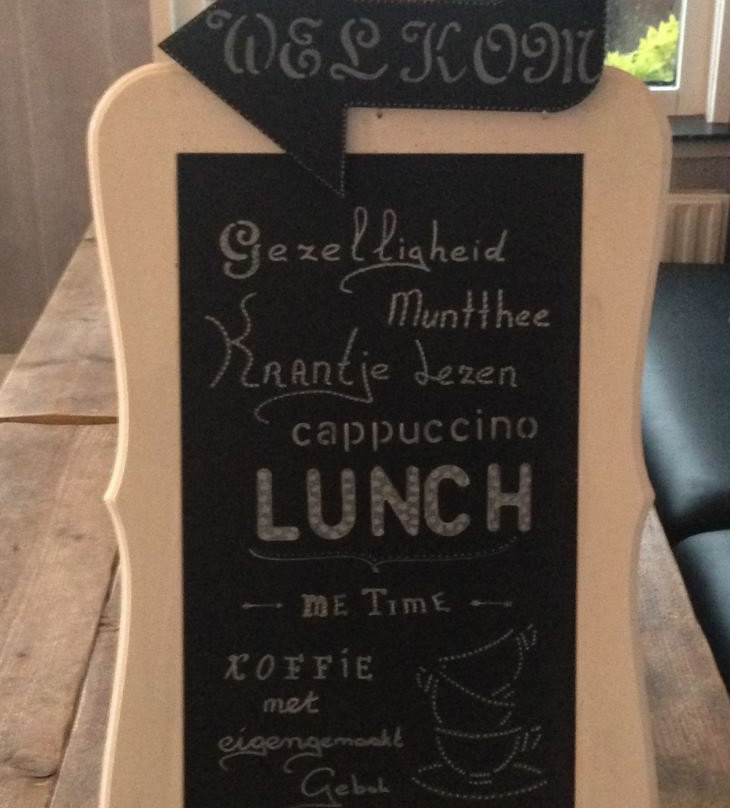 WELKOM
Gezelligheid
Muntthee
Krantje Lezen
cappuccino
LUNCH
me Time
KOFFIE
met
eigengemaakt
Gebak